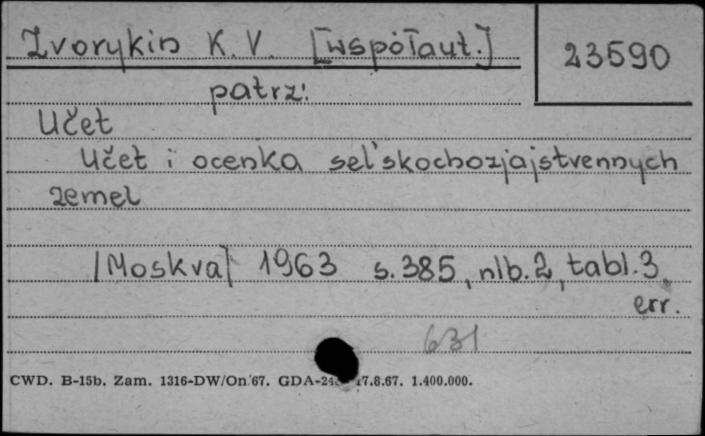 Zvorykin K.V. [współaut.]
23590
patrz:
Učet
Učet i ocenka sel'skochozjajstvennych
zemel
[Moskva] 1963 s.385, nlb.2, tabl.3,
err.
631
CWD. B-15b. Zam. 1316-DW/On/67. GDA-24 17.8.67. 1.400.000.